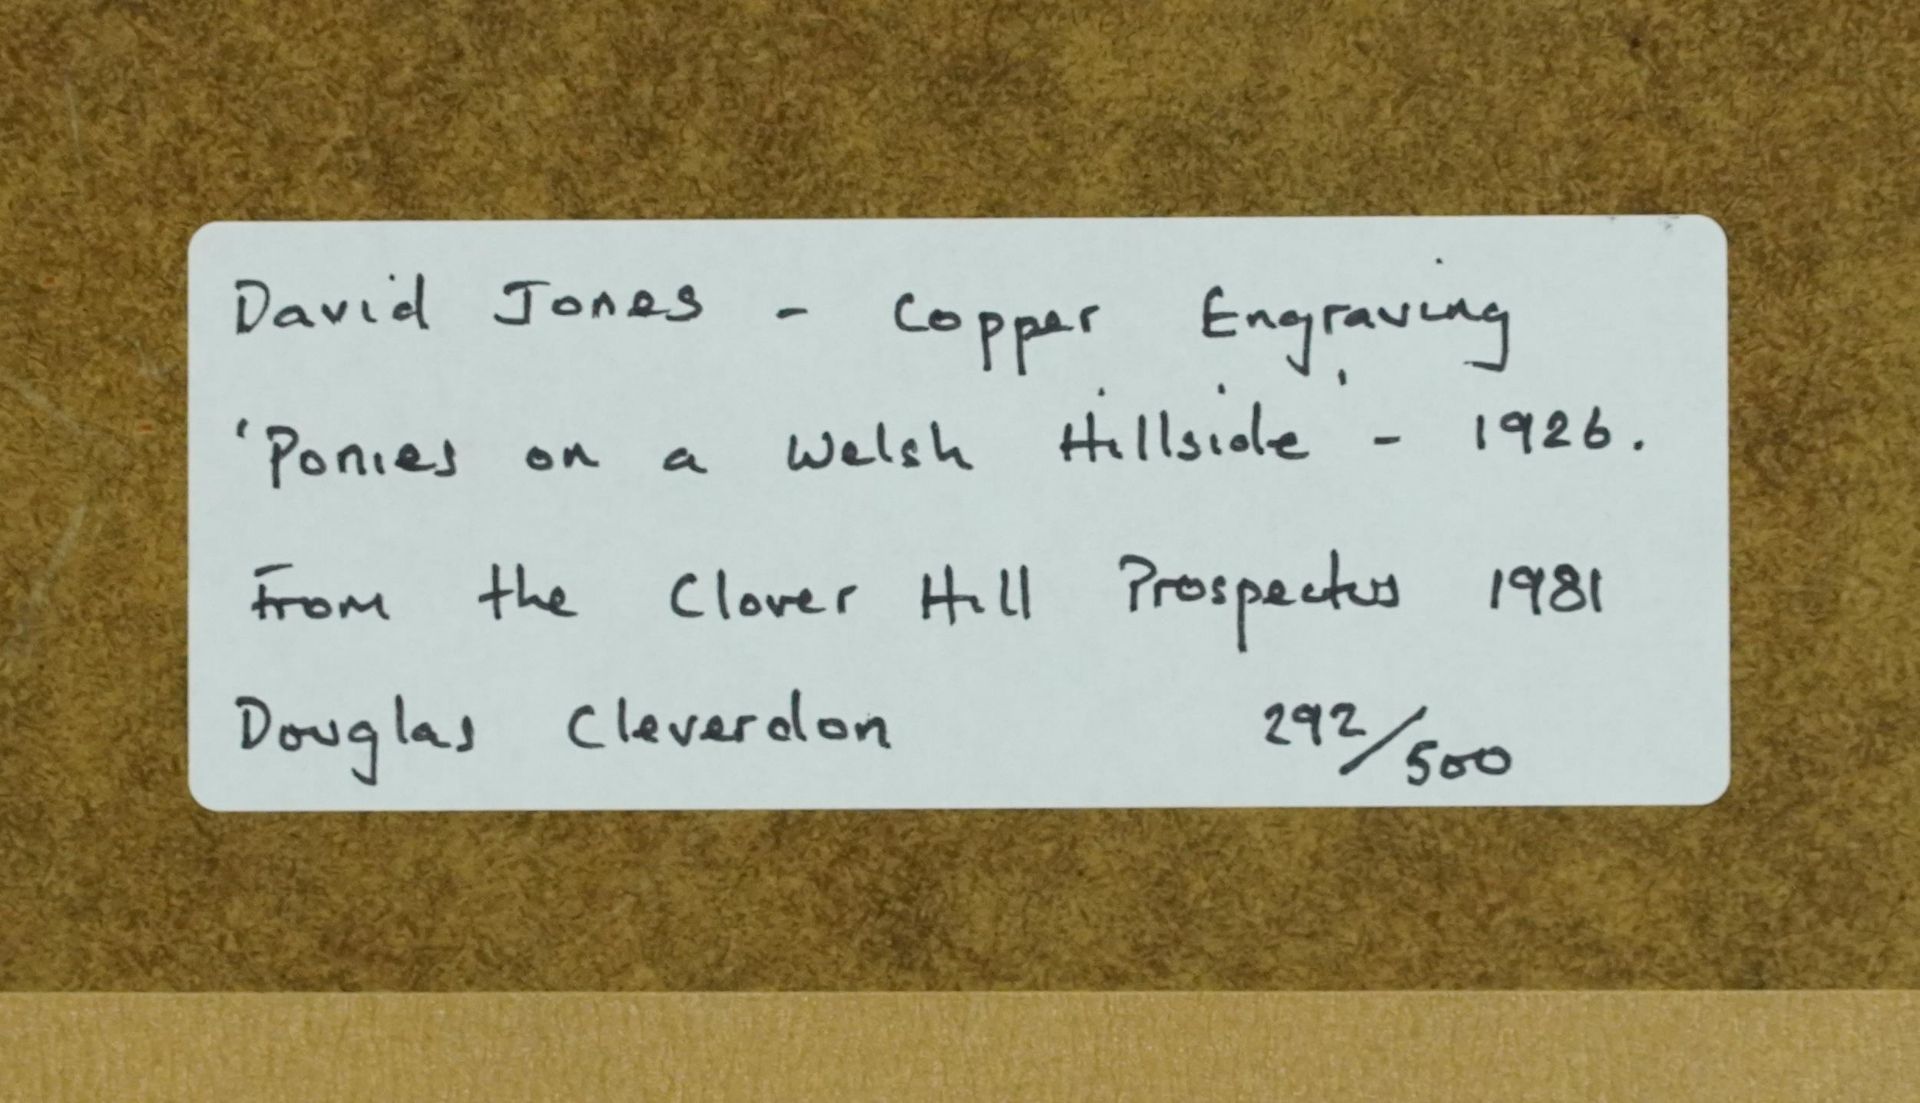 David Jones - Copper Engraving
'Ponies on a Welsh Hillside' - 1926.
From the Clover Hill Prospectus 1981
Douglas Cleverdon 292/500